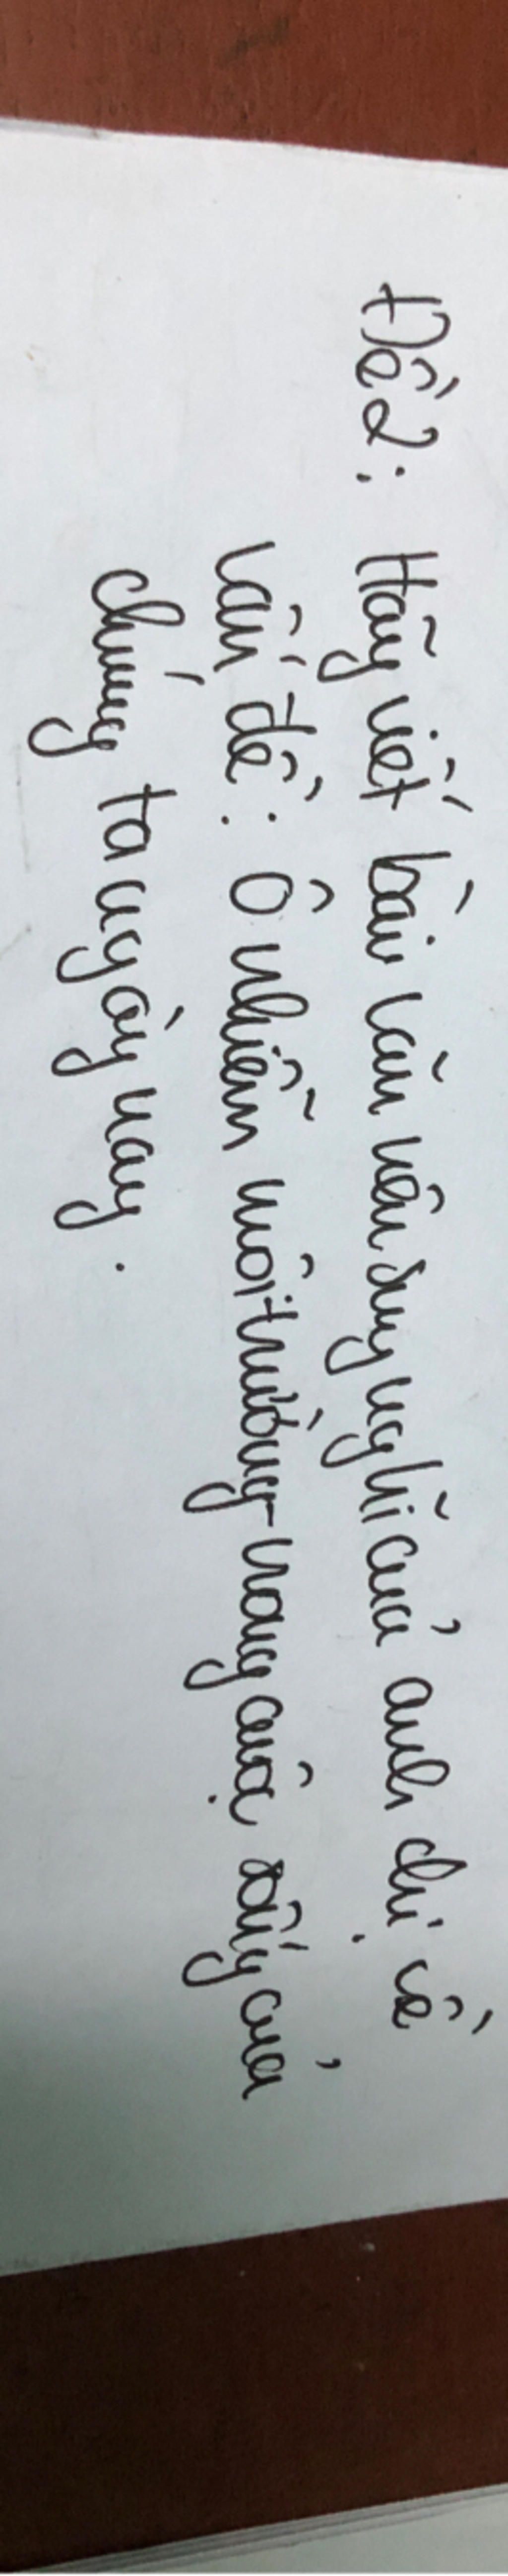 Đề 2: Hãy viết bài văn nêu suy nghĩ của anh chị về
vấn đề: Ô nhiễm môi trường trong cuộc sống của
chúng ta ngày nay.